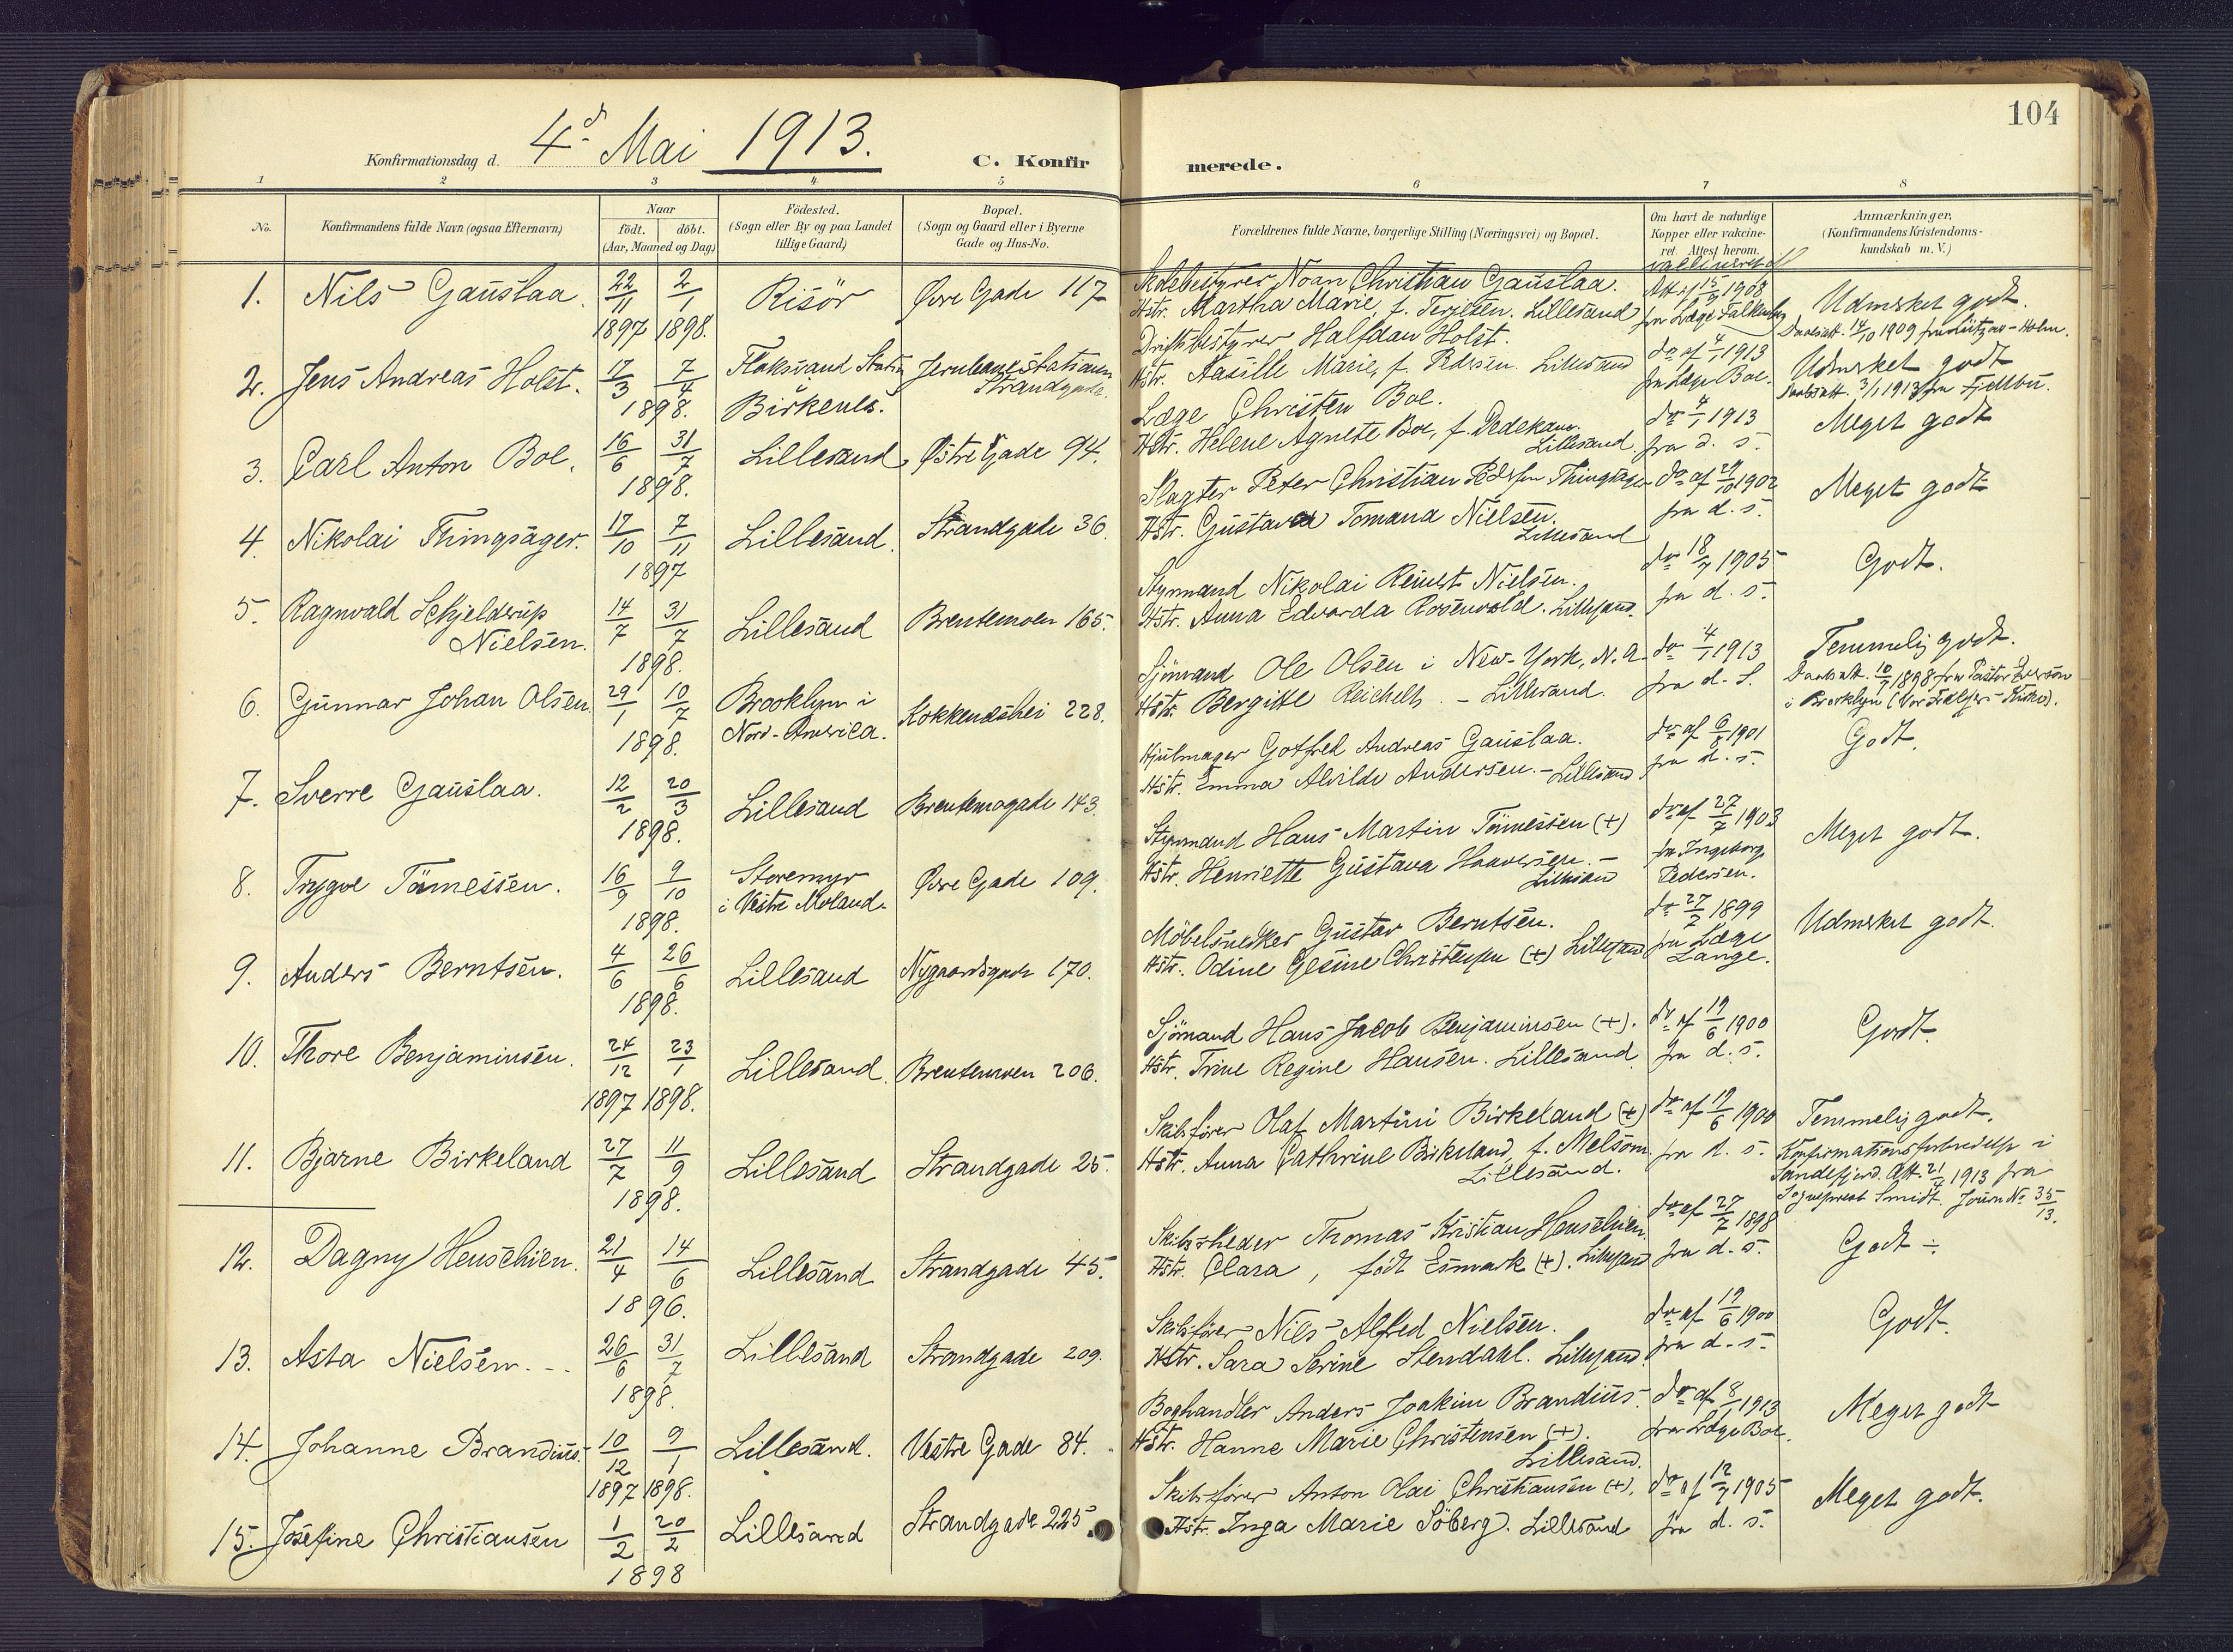 104
Konfirmationsdag d. 4d Mai 1913.
C. Konfirmerede.
1 2 3 4 5 6 7 8
No.
Konfirmandens fulde Navn (ogsaa Efternavn)
Naar
födt. döbt.
(Aar, Maaned og Dag)
Födested.
(Sogn eller By og paa Landet
tillige Gaard)
Bopæl.
(Sogn og Gaard eller i Byerne
Gade og Hus-No.
Forældrenes fulde Navne, borgerlige Stilling (Næringsvei) og Bopæl.
Om havt de naturlige
Kopper eller vakcine-
ret. Attest herom.
Anmærkninger,
(Konfirmandens Kristendoms-
kundskab m. V.)
1. Nils Gauslaa. 22/11 1897 2/1 1898. Risör Øvre Gade 117
Skolebestyrer Noan Christian Gauslaa.
Hstr. Martha Marie, f. Terjesen. Lillesand
vaccineret
Att. af 15/9 1908
fra Læge Falkenberg
Udmerket godt.
Daabsatt. 14/10 1909 fra Lützow-Holm.
2. Jens Andreas Holst. 17/3 7/4 1898. Flaksvand Station
i Birkenes. Jernbanestationen
Strandgade.
Driftsbestyrer Halfdan Holst.
Hstr. Aasille Marie, f. Pedersen. Lillesand
do af 4/1 1913
fra Læge Boe.
Udmerket godt
Daabsatt. 3/1 1913 fra Fjellbu.
3. Carl Anton Boe. 16/6 31/7 1898. Lillesand Østre Gade 94.
Læge Christen Boe.
Hstr. Helene Agnete Boe, f. Dedekam.
Lillesand.
do 4/1 1913
fra d. s.
Meget godt
4. Nikolai Thingsager. 17/10 7/11 1897 Lillesand. Strandgade 36.
Slagter Peter Christian Pedersen Thingsager
Hstr. Gustava Tomana Nielsen.
Lillesand
do af 29/10 1902
fra d. s.
Meget godt
5. Ragnvald Schjelderup
Nielsen. 14/7 31/7 1898. Lillesand Brentemoen 165.
Styrmand Nikolai Reinert Nielsen.
Hstr. Anna Edvarda Rosenvold. Lillesand.
do 18/7 1905
fra d. s.
Godt.
6. Gunnar Johan Olsen. 29/1 10/7 1898. Brooklyn i
Nord-Amerika. Kokkeneshei 228.
Sjömand Ole Olsen i New-York, N. A.
Hstr. Bergitte Reichelt. - Lillesand.
do 4/1 1913
fra d. s.
Temmelig godt.
Daabsatt. 10/7 1898 fra Pastor Everson
i Brooklyn (Vor Frelsers Kirke).
7. Sverre Gauslaa. 12/2 20/3 1898. Lillesand Brentemogade 143.
Hjulmager Gotfred Andreas Gauslaa.
Hstr. Emma Alvilde Andersen. - Lillesand
do af 6/8 1901
fra d. s.
Godt.
8. Trygve Tönnessen. 16/9 9/10 1898. Storemyr
i Vestre Moland. Øvre Gade 109.
Styrmand Hans Martin Tönnessen (+)
Hstr. Henriette Gustava Haaversen. -
Lillesand
do af 27/7 1903
fra Ingeborg
Pedersen.
Meget godt.
9. Anders Berntsen. 4/6 26/6 1898. Lillesand Nygaardsgade 170.
Möbelsnedker Gustav Berntsen.
Hstr. Odine Gesine Christensen (+) Lillesand
do 27/7 1899
fra Læge
Lange.
Udmerket godt.
10. Thore Benjaminsen. 24/12 1897 23/1 1898. Lillesand. Brentemoen 206.
Sjömand Hans Jacob Benjaminsen (+).
Hstr. Trine Regine Hansen. Lillesand.
do af 19/6 1900
fra d. s.
Godt.
11. Bjarne Birkeland 27/7 11/9 1898. Lillesand Strandgade 25.
Skibsförer Olaf Martini Birkeland (+)
Hstr. Anna Cathrine Birkeland, f. Melsom
Lillesand.
do af 19/6 1900
fra d. s.
Temmelig godt.
Konfirmationsforberedelse i
Sandefjord. Att. 21/4 1913 fra
Sogneprest Smidt. Journ No. 35/13.
12. Dagny Henschien. 21/4 14/6 1896. Lillesand Strandgade 45.
Skibsrheder Thomas Kristian Henschien.
Hstr. Clara, födt Esmark (+). Lillesand
do af 27/7 1898
fra d. s.
Godt ÷
13. Asta Nielsen. - . 26/6 31/7 1898. Lillesand Strandgade 209.
Skibsförer Nils Alfred Nielsen.
Hstr. Sara Serine Stendahl. Lillesand.
do af 19/6 1900
fra d. s.
Godt.
14. Johanne Brandius. 10/12 1897 9/1 1898. Lillesand. Vestre Gade 84.
Boghandler Anders Joakim Brandius.
Hstr. Hanne Marie Christensen (+).
Lillesand.
do af 8/1 1913
fra Læge Boe.
Meget godt
15. Josefine Christiansen 1/2 20/2 1898 Lillesand Strandgade 225.
Skibsförer Anton Olai Christiansen (+).
Hstr. Inga Marie Söberg. Lillesand
do af 12/7 1905
fra d. s.
Meget godt.